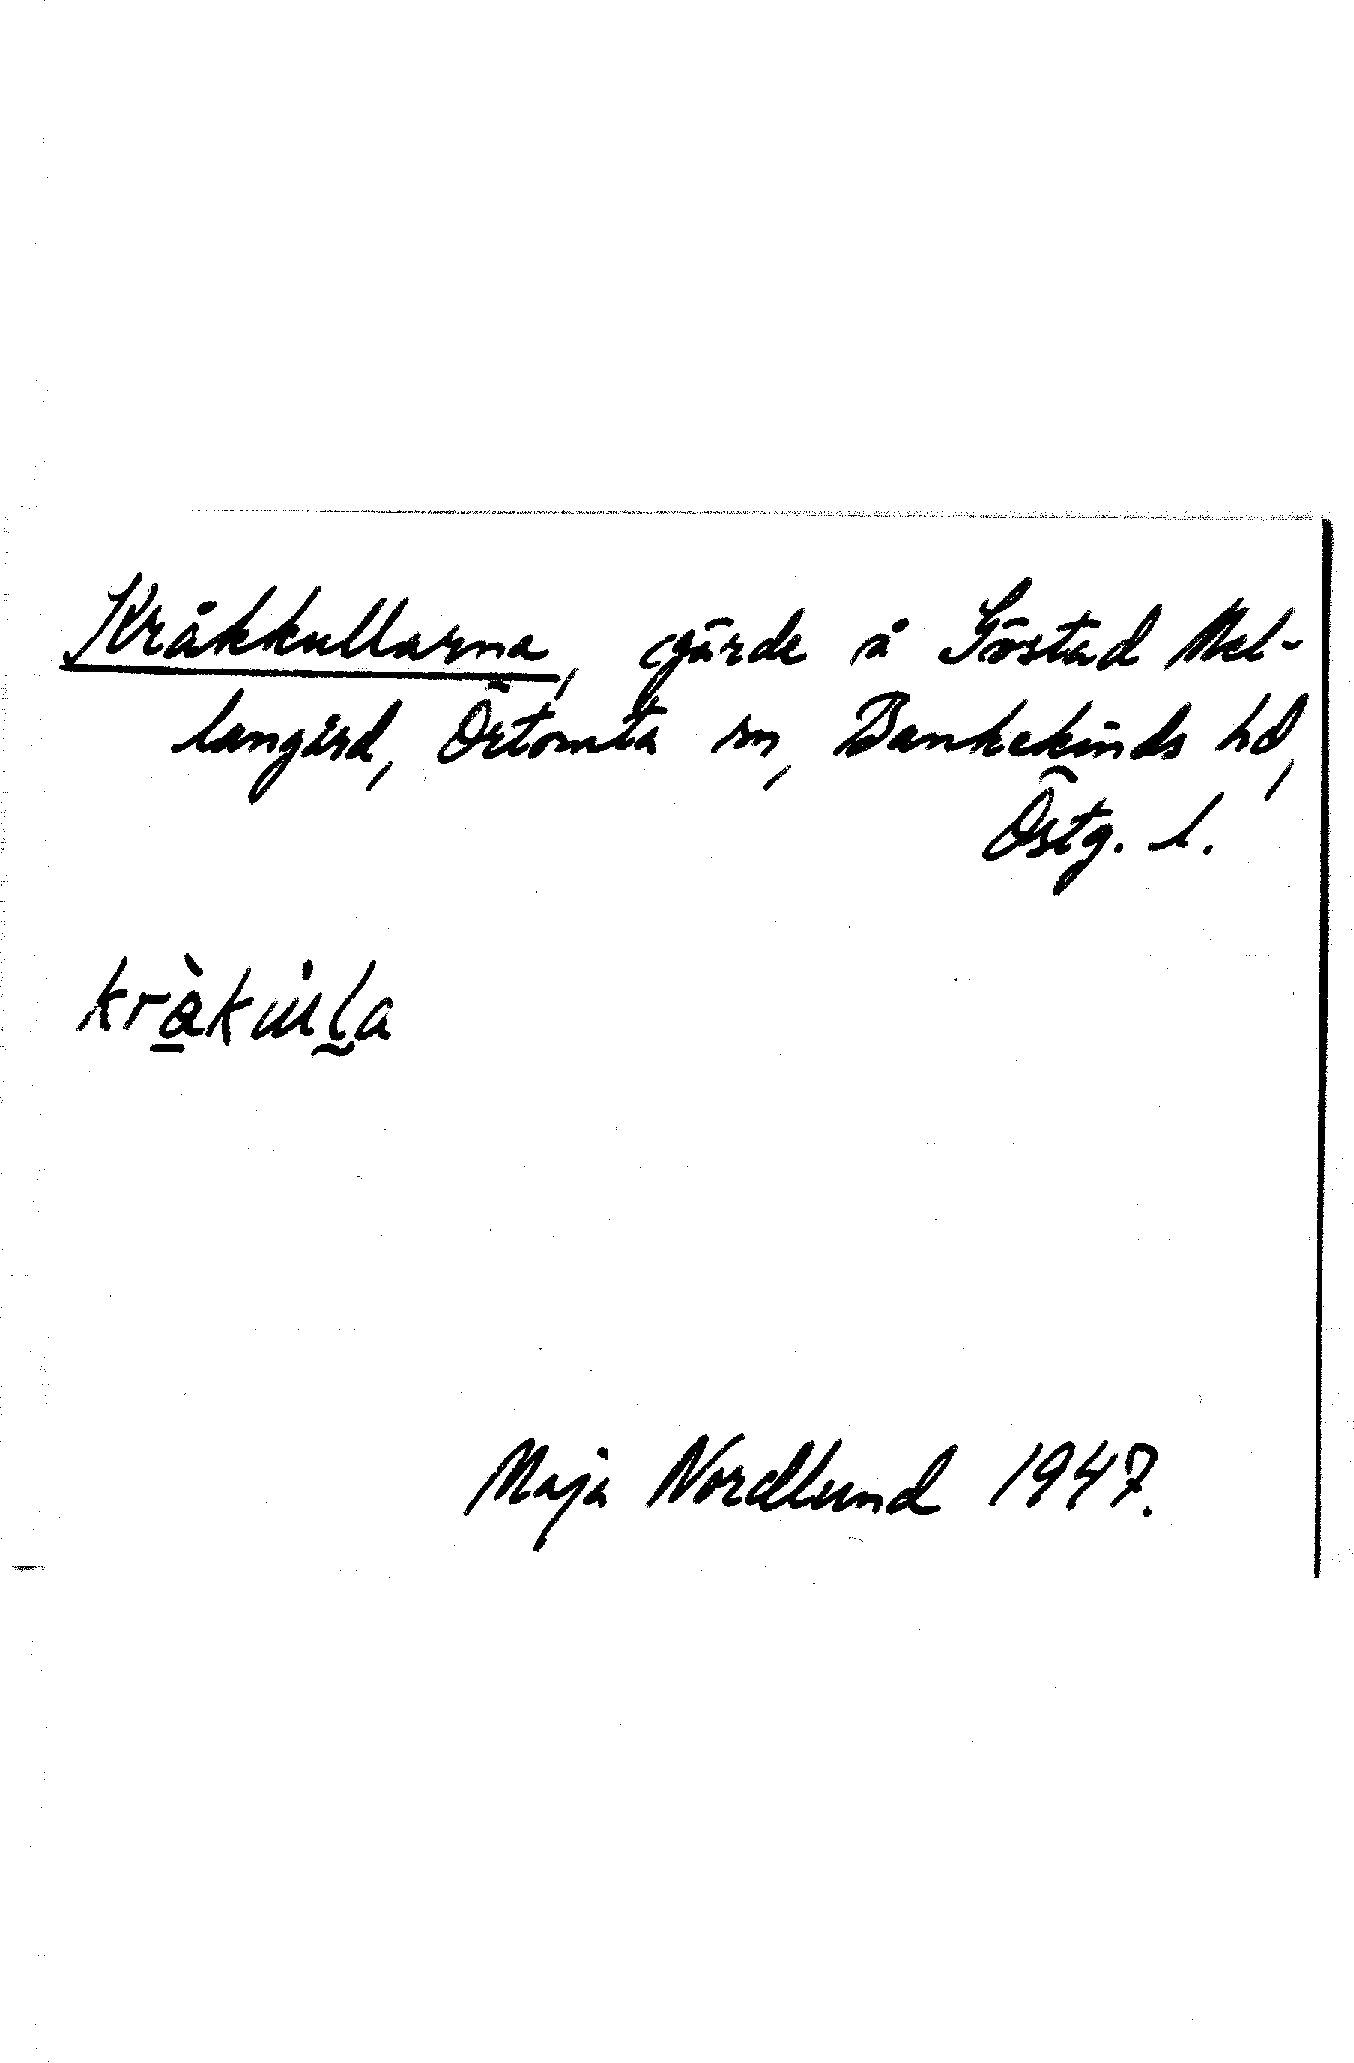 Kråkkullarna, gärde å Göstad Mel-
langård, Örtomta sn, Bankekinds hd,
Östg. l.
kràkul̰a
Maja Nordlund 1947.